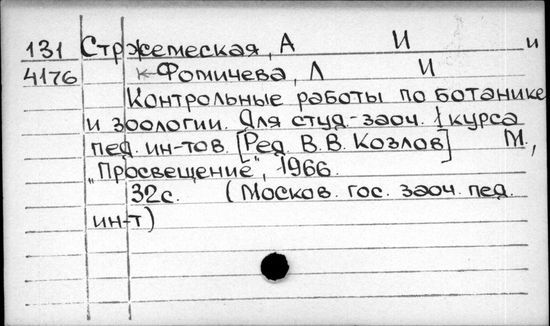 131 Стржемеская, А И и
4176 к Фомичева, Л И
Контрольные работы по ботанике
и зоологии. Для студ-заоч. 1 курса
пед. ин-тов. [Ред. В.В. Козлов] М.,
„Просвещение", 1966.
32с. (Москов. гос. заоч. пед.
ин-т)